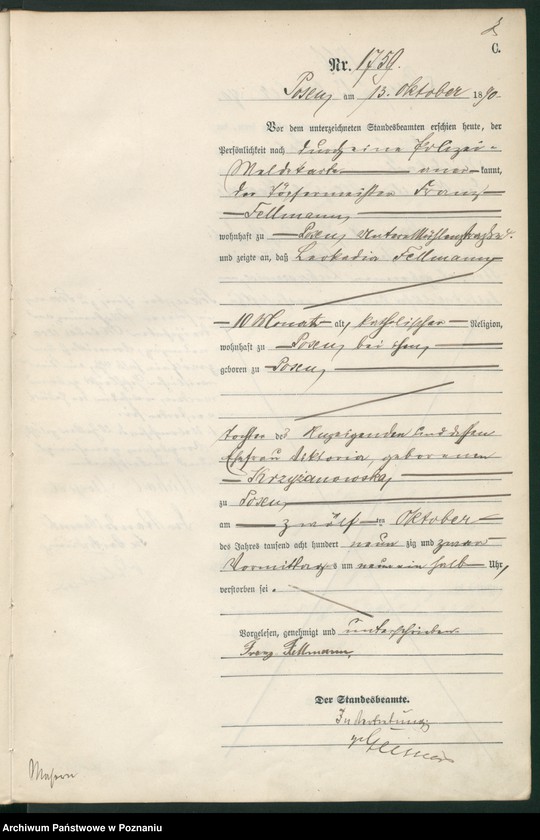 C.
Nr. 1750.
Posen, am 13. Oktober 1890.
Vor dem unterzeichneten Standesbeamten erschien heute, der
Persönlichkeit nach durch eine Polizei-
Meldekarte aner=kannt,
der Töpfermeister Franz
Fellmann,
wohnhaft zu Posen, Untere Mühlenstraße
und zeigte an, daß Leokadia Fellmann,
10 Monate alt, katholischer Religion,
wohnhaft zu Posen, bei ihm,
geboren zu Posen,
Tochter des Anzeigenden und dessen
Ehefrau Viktoria, geborenen
Krzyżanowska,
zu Posen,
am zwölften Oktober
des Jahres tausend acht hundert neunzig und zwar
Vormittags um neunein halb Uhr,
verstorben sei.
Vorgelesen, genehmigt und unterschrieben
Franz Fellmann.
Der Standesbeamte.
In Vertretung:
Masern
Archiwum Państwowe w Poznaniu